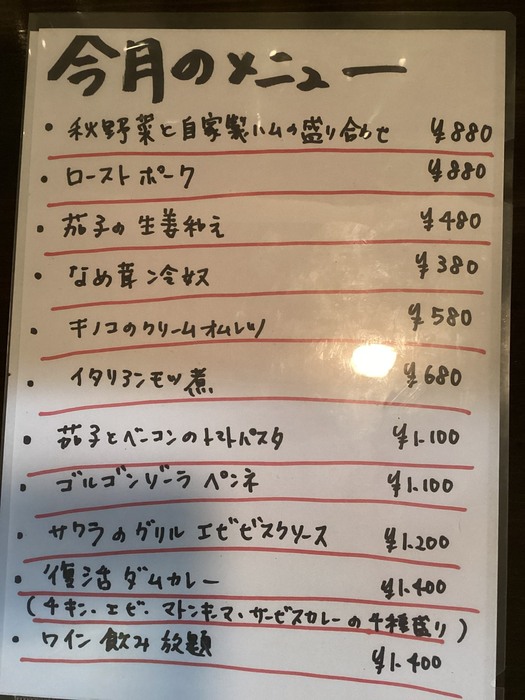 今月のメニュー
・秋野菜と自家製ハムの盛り合わせ ¥880
・ローストポーク ¥880
・茄子の生姜和え ¥480
・なめ茸冷奴 ¥380
・キノコのクリームオムレツ ¥580
・イタリアンモツ煮 ¥680
・茄子とベーコンのトマトパスタ ¥1.100
・ゴルゴンゾーラ ペンネ ¥1.100
・サワラのグリル エビビスクソース ¥1.200
・復活ダムカレー ¥1.400
(チキン・エビ・マトンキーマ・サービスカレーの4種盛り)
・ワイン飲み放題 ¥1.400